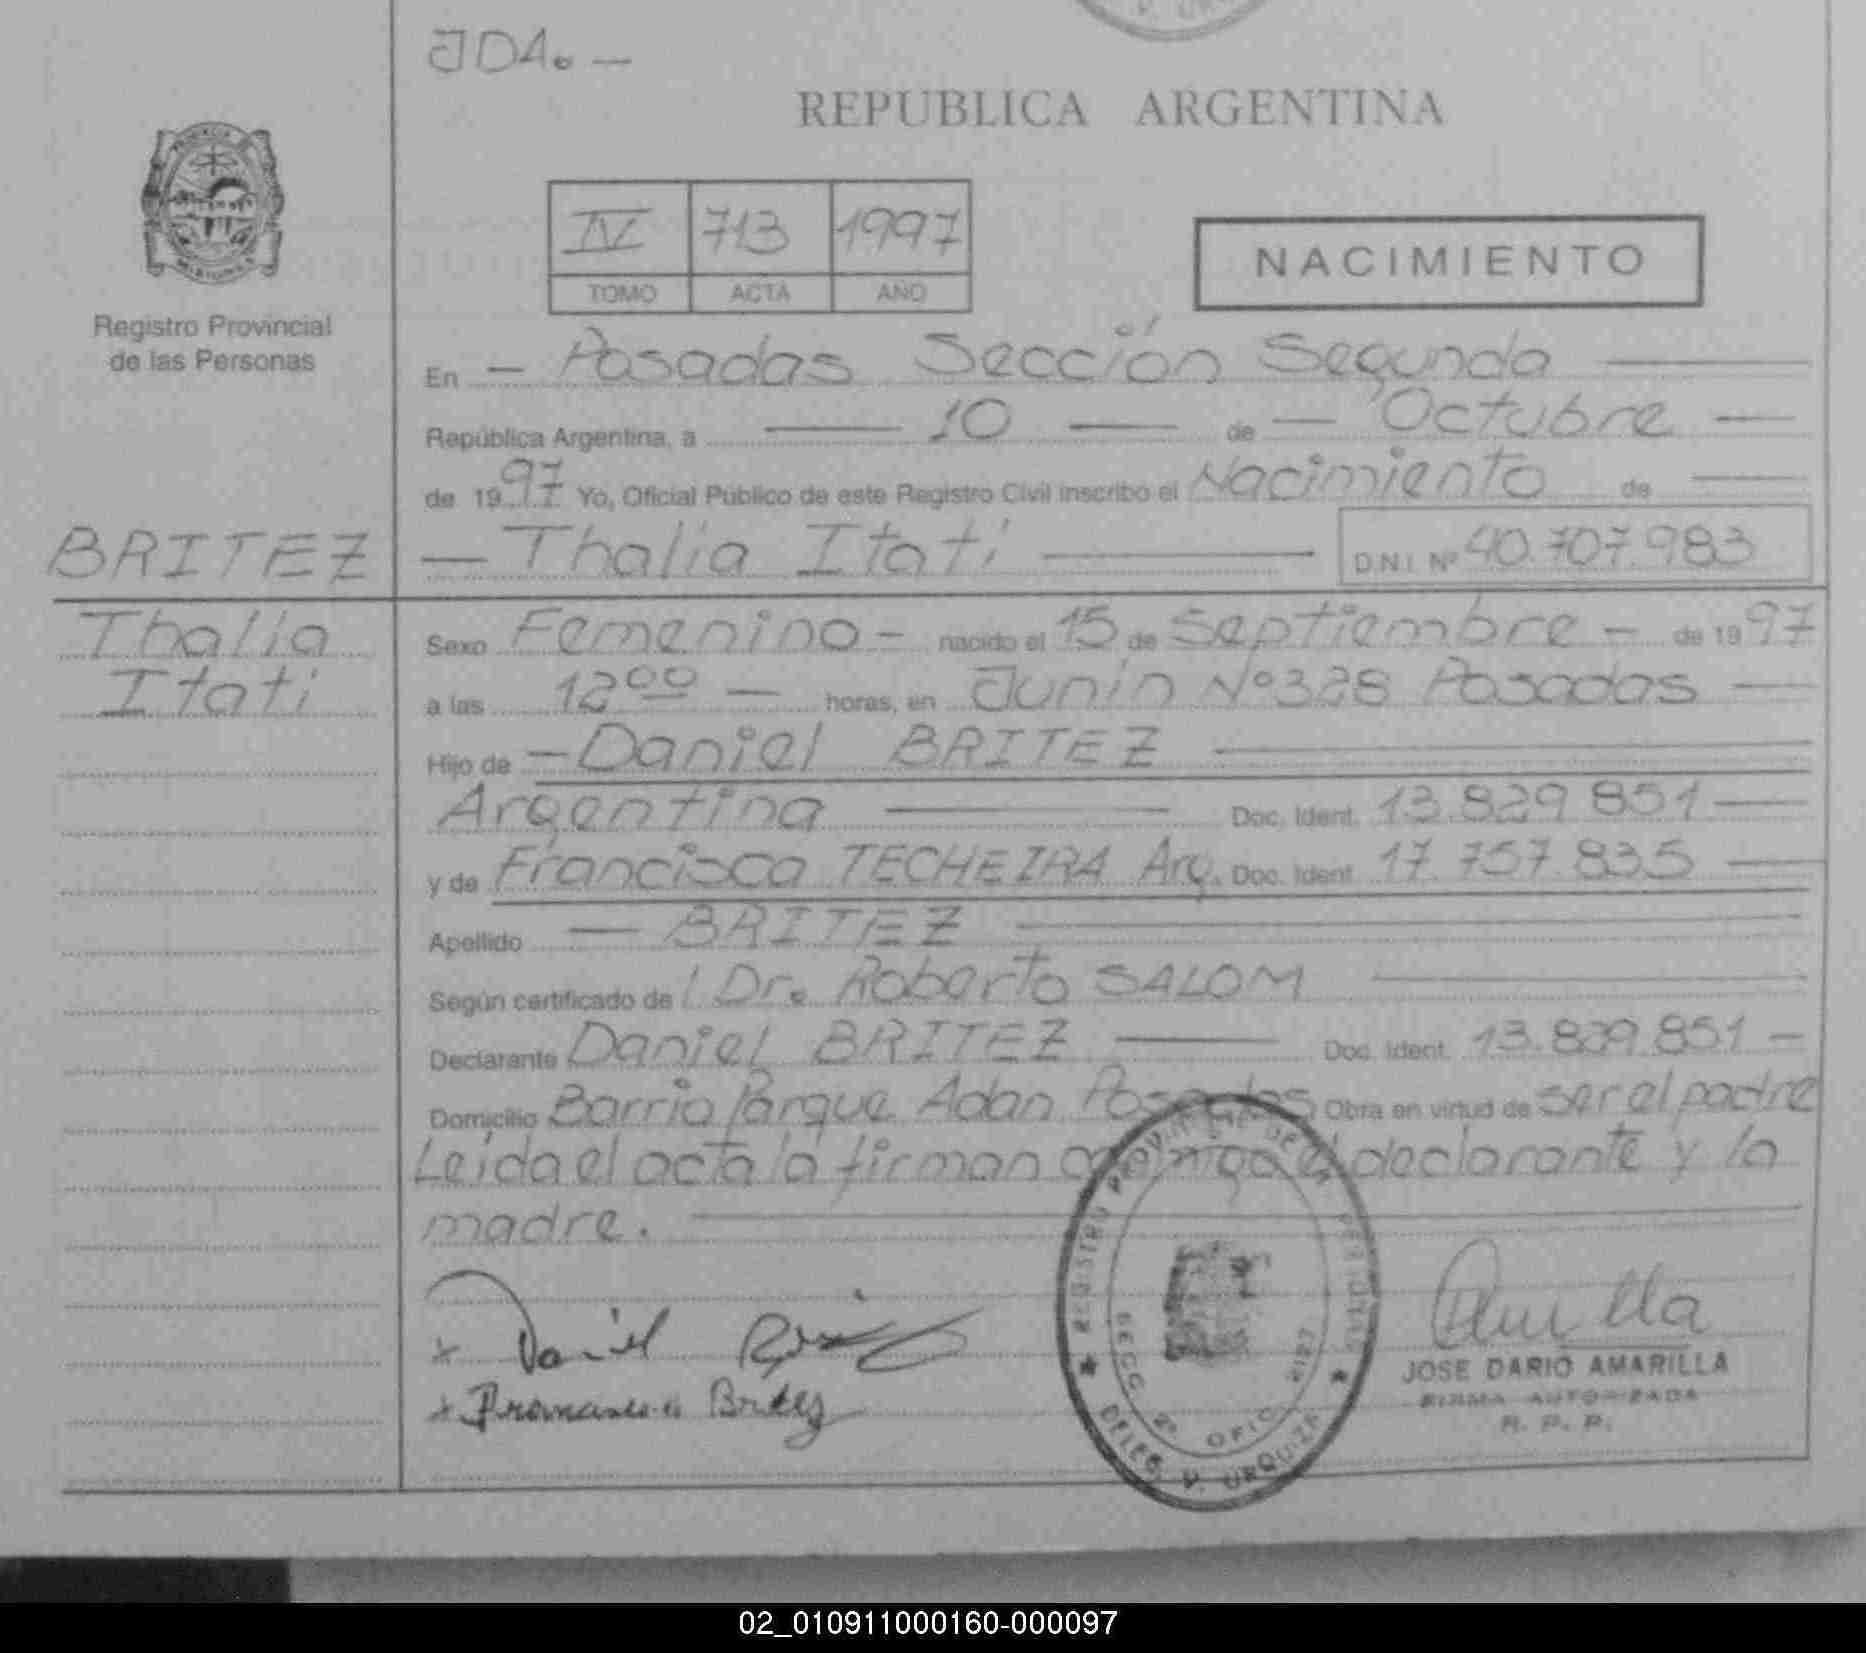 JDA. —
REPUBLICA ARGENTINA
IV 713 1997
TOMO ACTA AÑO
NACIMIENTO
MISIONES
Registro Provincial
de las Personas
En — Posadas Sección Segunda
República Argentina, a 10 de Octubre
de 1997 Yo, Oficial Público de este Registro Civil inscribo el Nacimiento de
BRITEZ — Thalia Itati D.N.I. Nº 40.707.983
Thalia
Itati
Sexo Femenino - nacido el 15 de Septiembre - de 1997
a las 12⁰⁰ — horas, en Junín Nº 328 Posadas
Hijo de — Daniel BRITEZ
Argentina Doc. Ident. 13.829.851
y de Francisca TECHEIRA Arg. Doc. Ident. 17.757.835
Apellido — BRITEZ
Según certificado de Dr. Roberto SALOM
Declarante Daniel BRITEZ Doc. Ident. 13.829.851 -
Domicilio Barrio Parque Adan Posadas Obra en virtud de ser el padre
Leída el acta la firman conmigo el declarante y la
madre.
x Daniel
x Britez
REGISTRO PROVINCIAL DE LAS PERSONAS
SECC. 2ª OFIC.
DELEG. V. URQUIZA
JOSE DARIO AMARILLA
FIRMA AUTORIZADA
R. P. P.
02_010911000160-000097